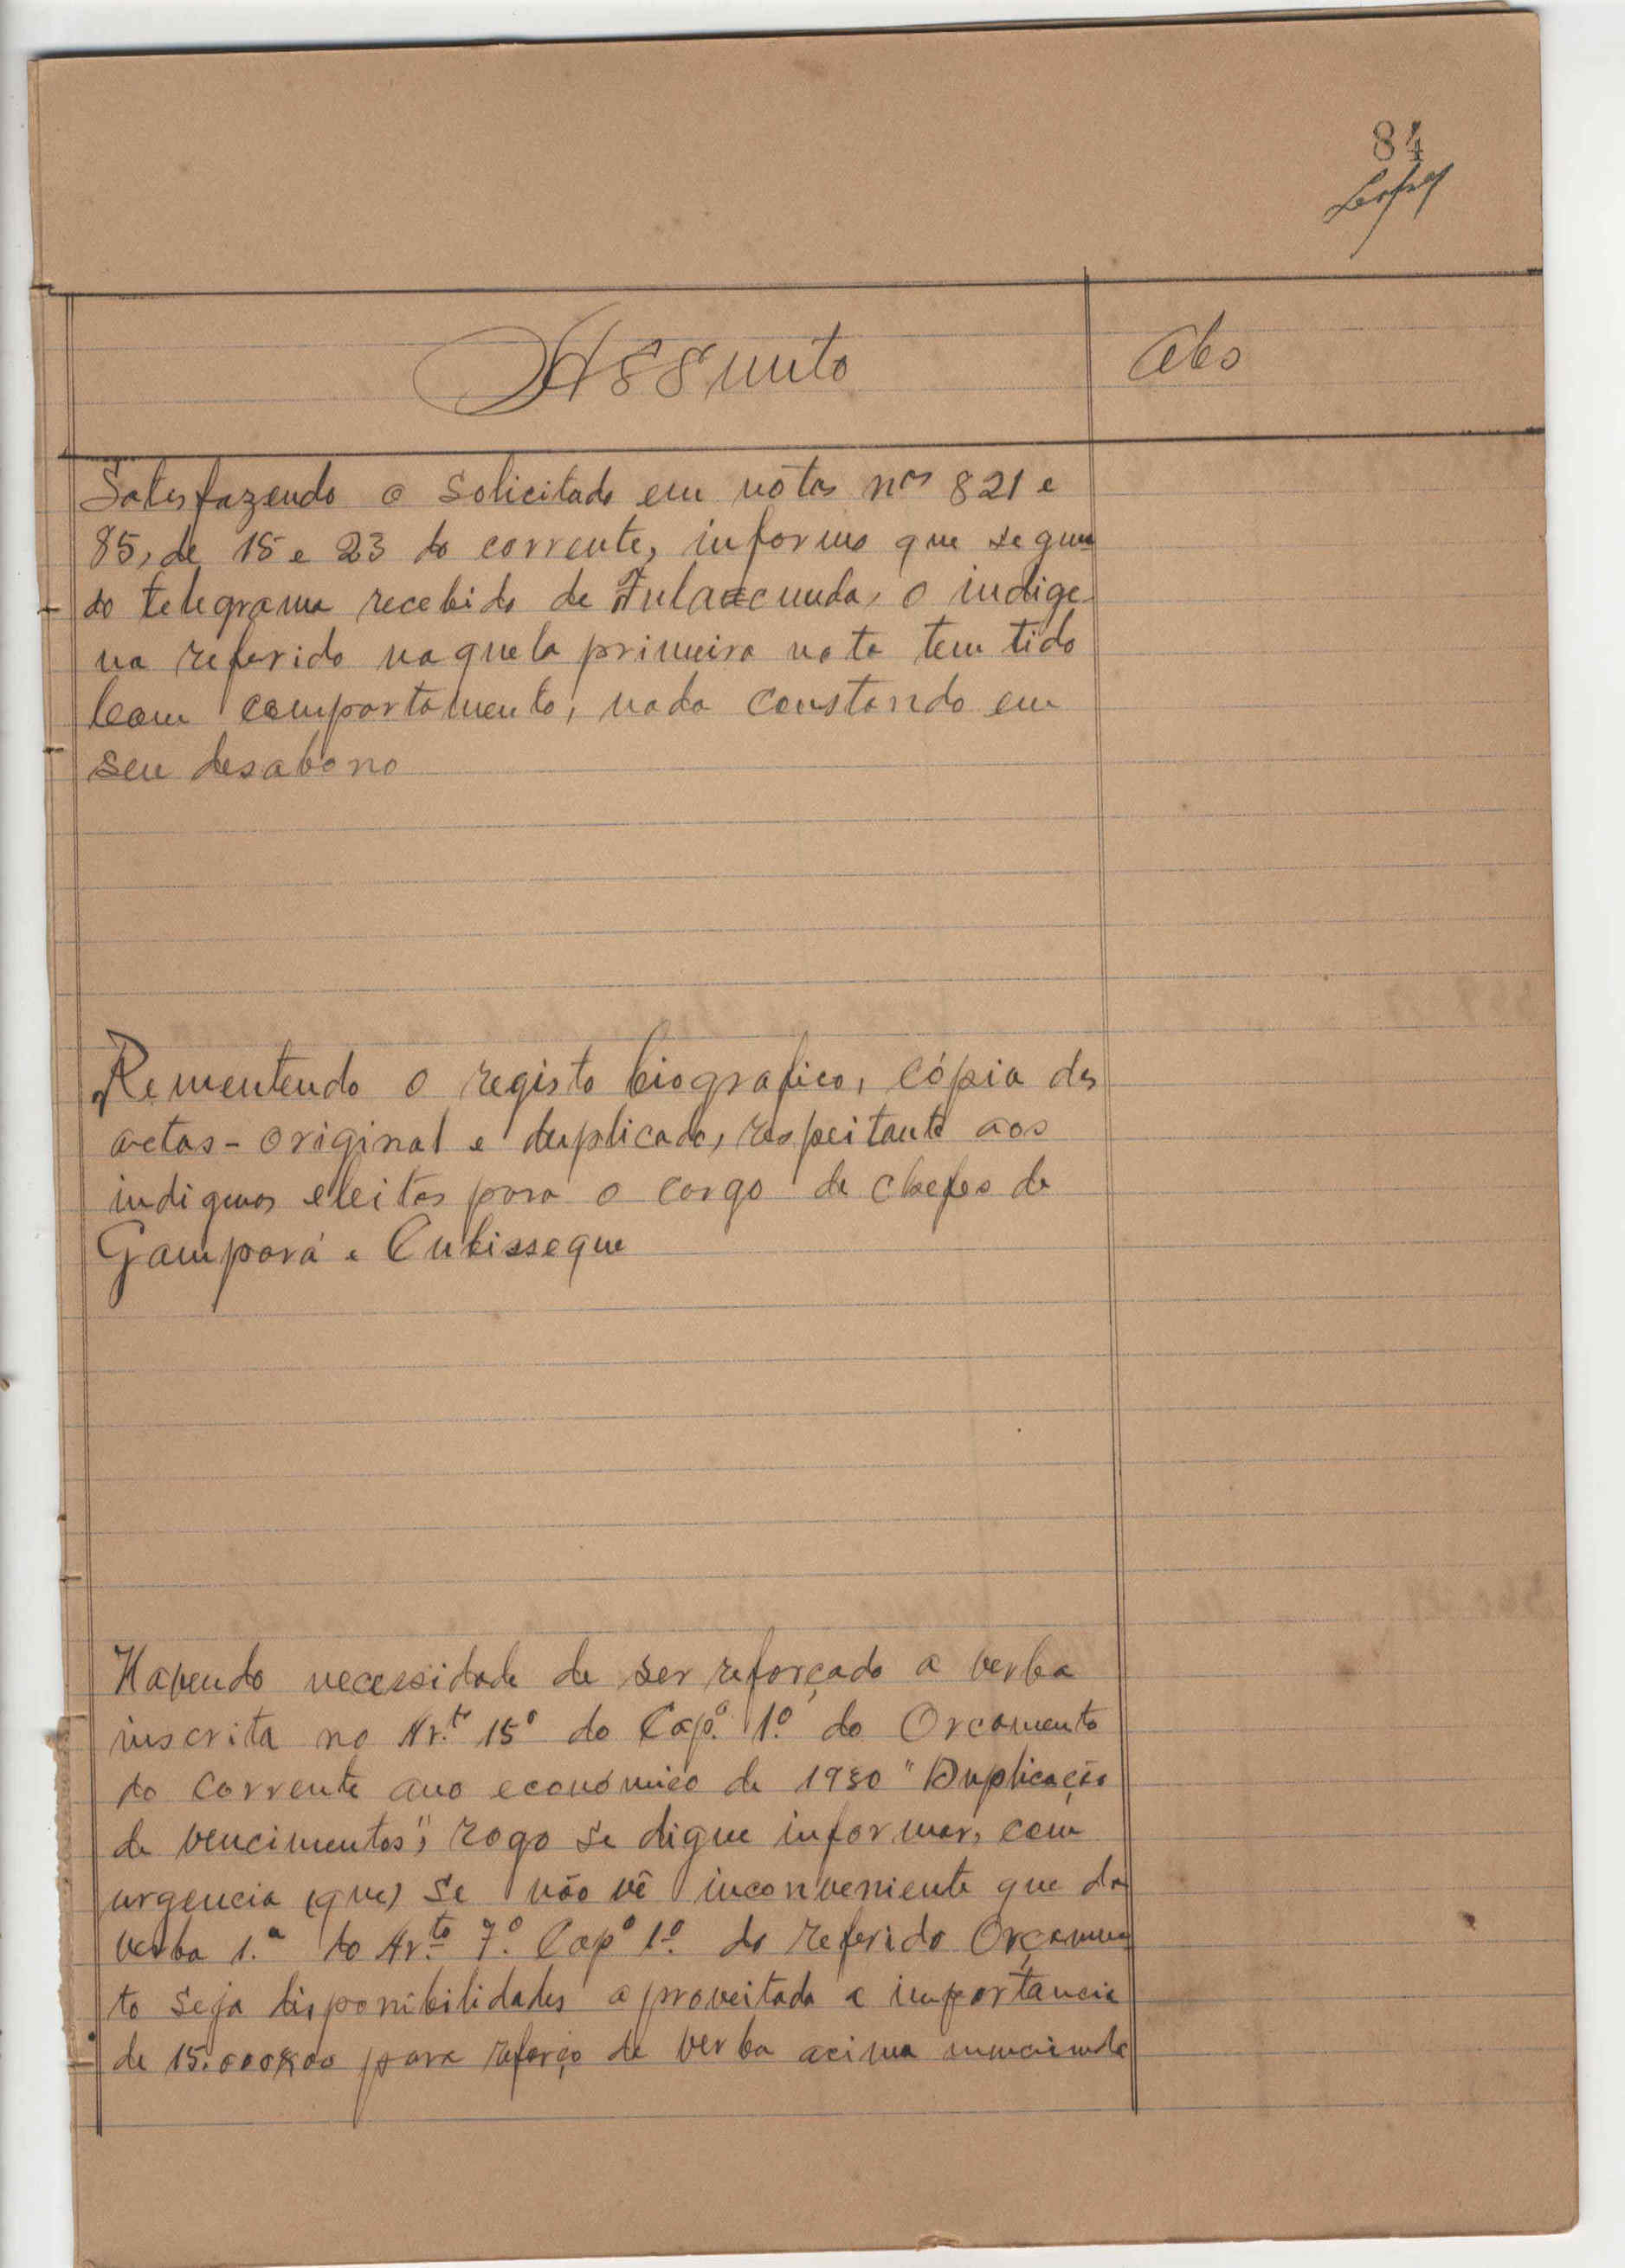 84
Assunto
Obs
Satisfazendo o solicitado em nótas nos 821 e
85, de 15 e 23 do corrente, informo que segun
do telegrama recebido de Fulacunda, o indige-
na referido naquela primeira nota tem tido
bom comportamento, nada constando em
seu desabono
Rementendo o registo biografico, cópia das
actas - original e duplicado, respeitante aos
indigenas eleitos para o cargo de chefes de
Gampará e Cubisseque
Havendo necessidade de ser reforçado a verba
inscrita no Ar.to 15º do Cap.º 1.º do Orcamento
do corrente ano económico de 1950 "Duplicação
de vencimentos", rogo se digne informar, com
urgencia (que) se não vê inconveniente que da
verba 1.ª do Ar.to 7.º Capº 1.º do referido Orçamen
to seja disponibilidades aproveitada a importancia
de 15.000$00 para reforço de verba acima